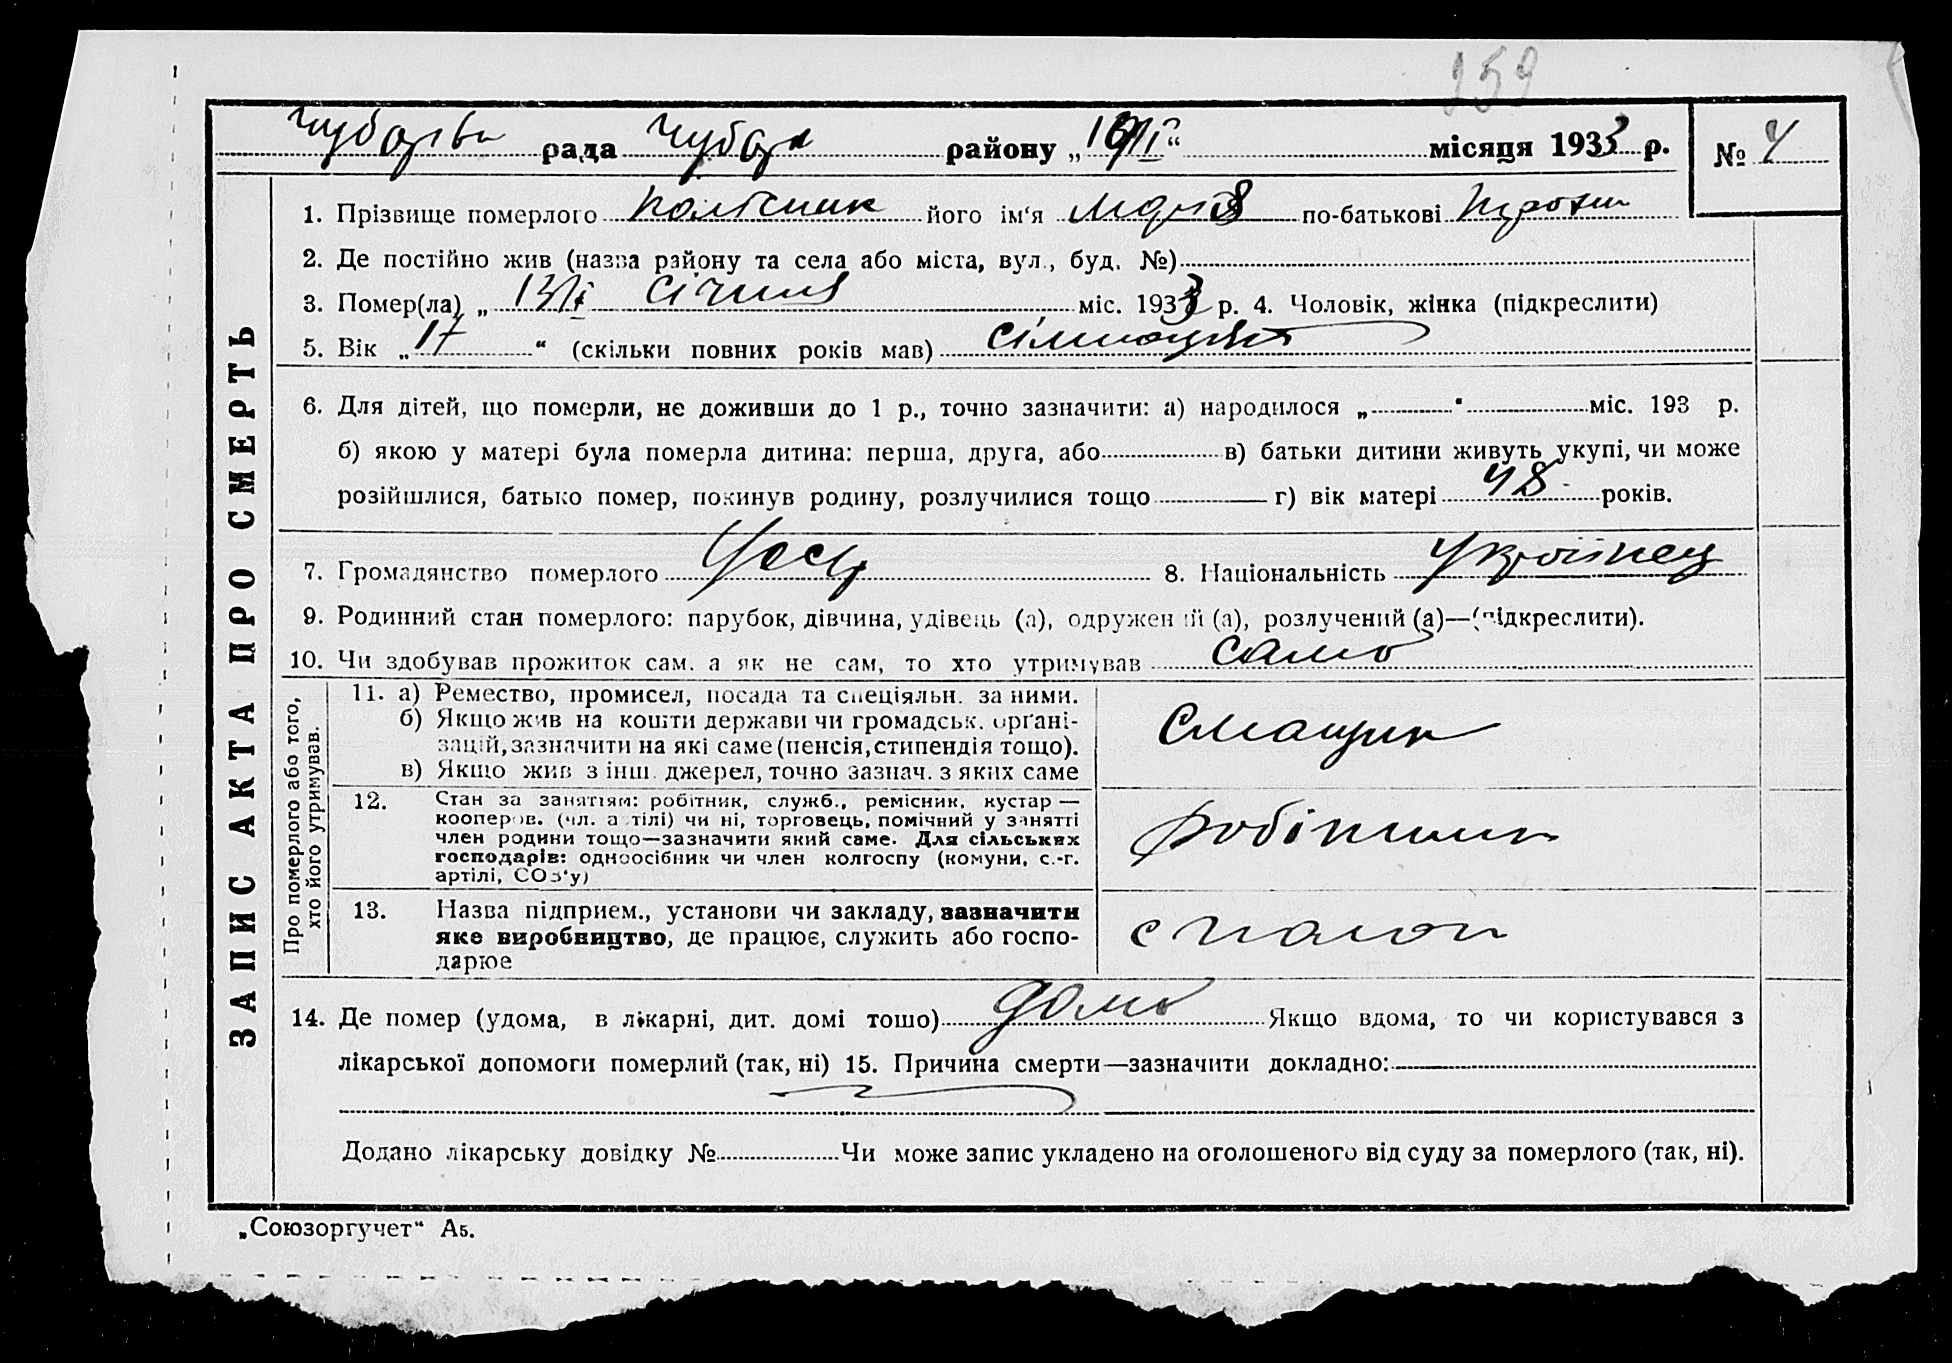 159
рада району „ “ місяця 1933 р. № 4
ЗАПИС АКТА ПРО СМЕРТЬ
1. Прізвище померлого його ім‘я по-батькові
2. Де постійно жив (назва району та села або міста, вул., буд. №)
3. Помер(ла) „ 13/I січня міс. 1933 р. 4. Чоловік, жінка (підкреслити)
5. Вік „ 17 “ (скільки повних років мав)
6. Для дітей, що померли, не доживши до 1 р., точно зазначити: а) народилося „ “ міс. 193 р.
б) якою у матері була померла дитина: перша, друга, або в) батьки дитини живуть укупі, чи може
розійшлися, батько помер, покинув родину, розлучилися тощо г) вік матері 48 років.
7. Громадянство померлого 8. Національність Українец
9. Родинний стан померлого: парубок, дівчина, удівець (а), одружений (а), розлучений (а)—(підкреслити).
10. Чи здобував прожиток сам, а як не сам, то хто утримував само
Про померлого або того, хто його утримував.
11. а) Ремество, промисел, посада та спеціяльн. за ними.
б) Якщо жив на кошти держави чи громадськ. органі-
зацій, зазначити на які саме (пенсія, стипендія тощо).
в) Якщо жив з інш. джерел, точно зазнач. з яких саме
Смащик
12. Стан за заняттям: робітник, служб., ремісник, кустар —
кооперов. (чл. артілі) чи ні, торговець, помічний у занятті
член родини тощо—зазначити який саме. Для сільських
господарів: одноосібник чи член колгоспу (комуни, с.-г.
артілі, СОЗ‘у)
13. Назва підприєм., установи чи закладу, зазначити
яке виробництво, де працює, служить або госпо-
дарює
14. Де помер (удома, в лікарні, дит. домі тощо) домо Якщо вдома, то чи користувався з
лікарської допомоги померлий (так, ні) 15. Причина смерти—зазначити докладно:
Додано лікарську довідку № Чи може запис укладено на оголошеного від суду за померлого (так, ні).
„Союзоргучет“ А5.